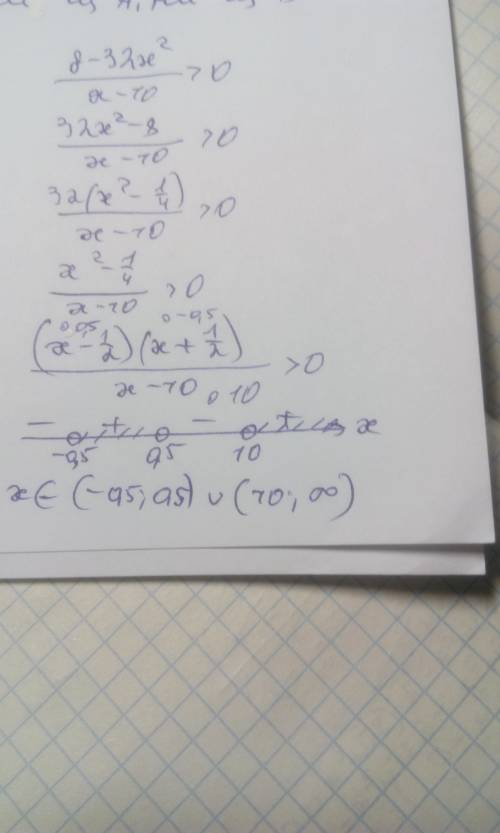 (8-32x²)/(x-10) >0
(32x²-8)/(x-10) >0
32(x²-1/4)/(x-10) >0
(x²-1/4)/(x-10) >0
0 0,5 0 -0,5
(x-1/2)(x+1/2)/(x-10) >0
0 10
- + - + x
-0,5 0,5 10
x∈(-0,5;0,5)∪(10;∞)